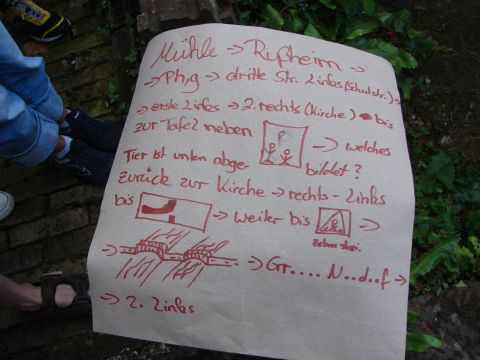 Mühle → Rußheim →
→ Ph,g → dritte Str. Links (Schulstr.) →
→ erste Links → 2. rechts (Kirche) bis
zur Tafel neben → welches
Tier ist unten abgebildet?
zurück zur Kirche → rechts - Links
bis → weiter bis →
→ → Gr.... N..d..f →
→ 2. Links